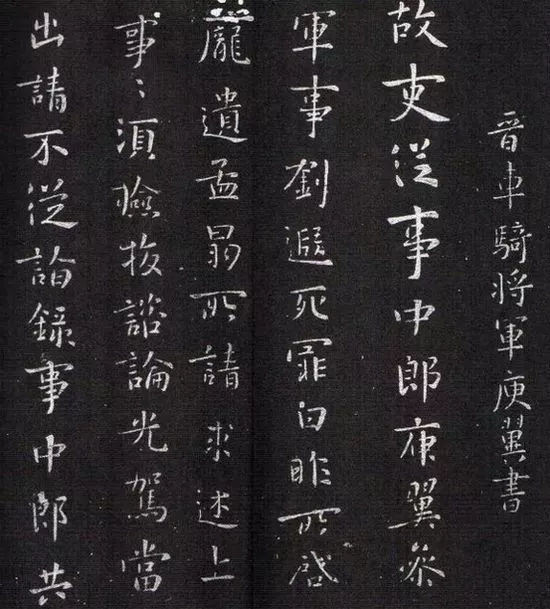 晉車騎將軍庾翼書
故吏從事中郎庾翼參
軍事劉遐死罪白昨所啓
龐遺孟昻所請求述上
事〻須檢校諮論光駕當
出請不從詣錄事中郎共